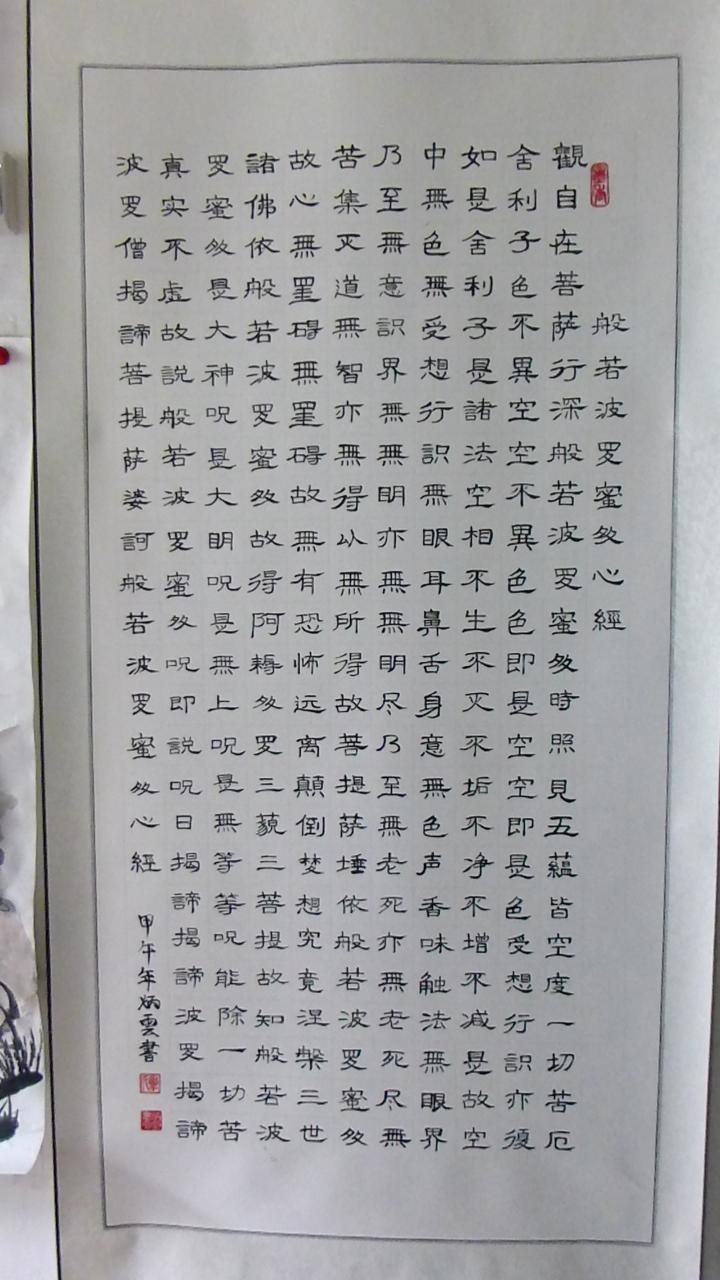 般若波罗蜜多心經
觀自在菩萨行深般若波罗蜜多時照見五蘊皆空度一切苦厄
舍利子色不異空空不異色色即是空空即是色受想行識亦復
如是舍利子是諸法空相不生不灭不垢不净不增不减是故空
中無色無受想行識無眼耳鼻舌身意無色声香味触法無眼界
乃至無意識界無無明亦無無明尽乃至無老死亦無老死尽無
苦集灭道無智亦無得以無所得故菩提萨埵依般若波罗蜜多
故心無罣碍無罣碍故無有恐怖远离顛倒梦想究竟涅槃三世
諸佛依般若波罗蜜多故得阿耨多罗三藐三菩提故知般若波
罗蜜多是大神呪是大明呪是無上呪是無等等呪能除一切苦
真实不虚故説般若波罗蜜多呪即説呪曰揭諦揭諦波罗揭諦
波罗僧揭諦菩提萨婆訶般若波罗蜜多心經
甲午年炳雲書